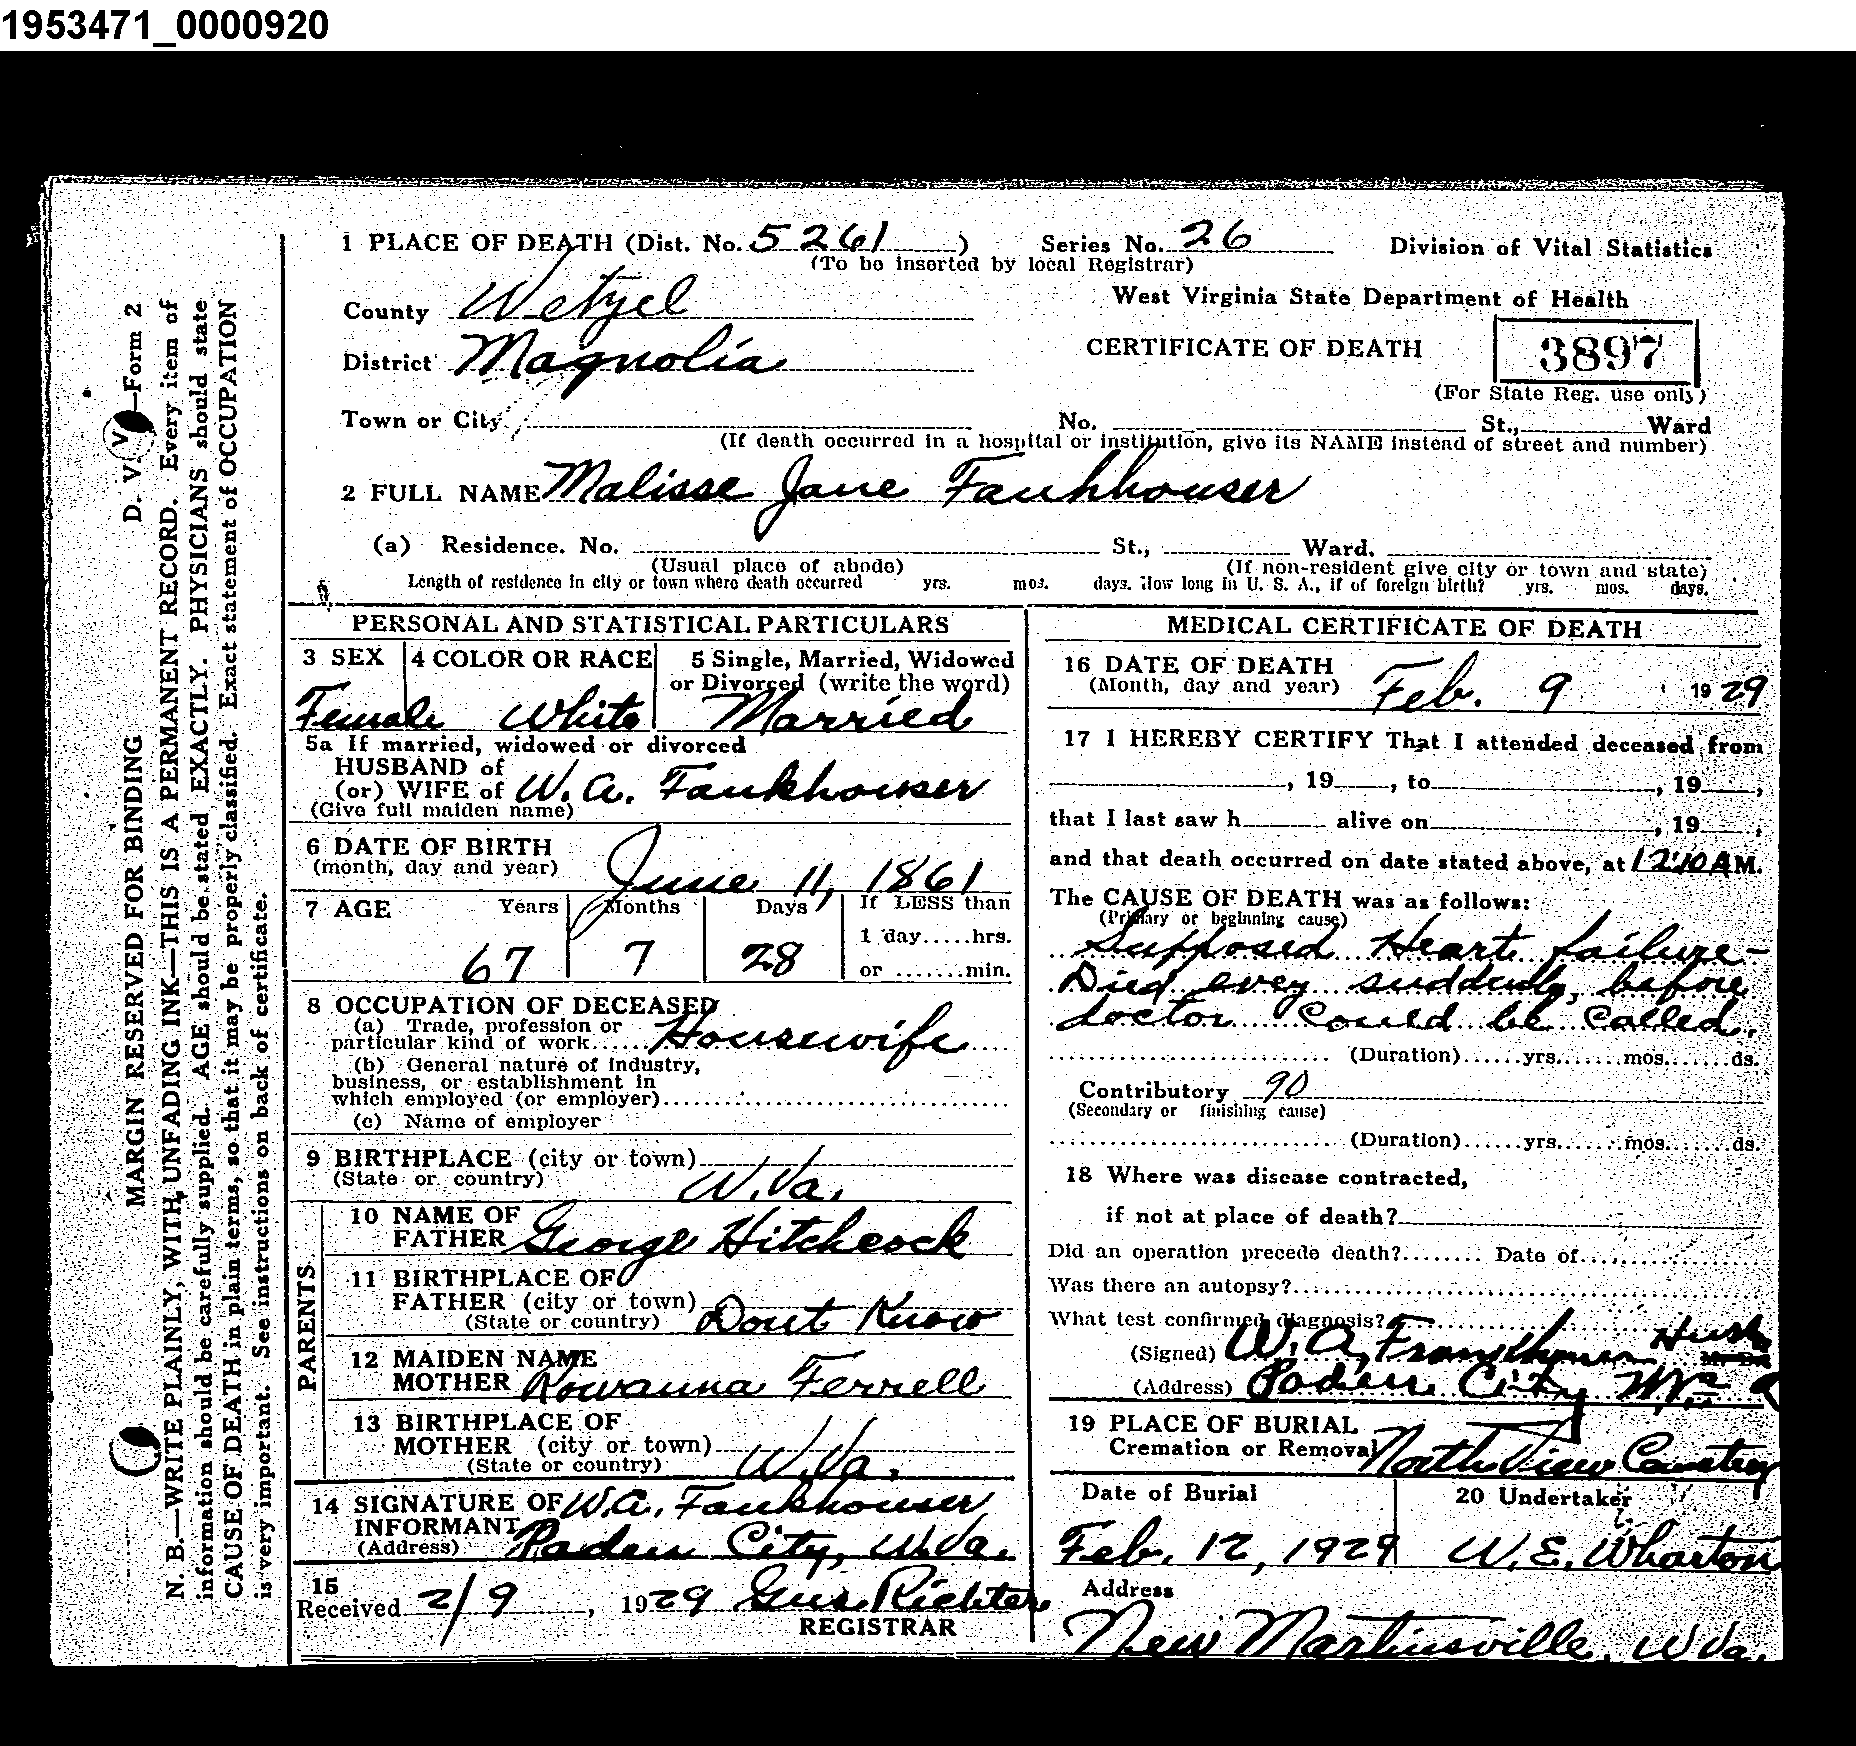 1953471_0000920
1 PLACE OF DEATH (Dist. No. 5261 ) Series No. 26 Division of Vital Statistics
(To be inserted by local Registrar)
County Wetzel West Virginia State Department of Health
District Magnolia CERTIFICATE OF DEATH 3897
(For State Reg. use only)
Town or City No. St., Ward
(If death occurred in a hospital or institution, give its NAME instead of street and number)
2 FULL NAME Malisse Jane Fankhouser
(a) Residence. No. St., Ward.
(Usual place of abode) (If non-resident give city or town and state)
Length of residence in city or town where death occurred yrs. mos. days. How long in U. S. A., if of foreign birth? yrs. mos. days.
PERSONAL AND STATISTICAL PARTICULARS
3 SEX 4 COLOR OR RACE 5 Single, Married, Widowed
or Divorced (write the word)
Female White Married
5a If married, widowed or divorced
HUSBAND of
(or) WIFE of W. A. Fankhouser
(Give full maiden name)
6 DATE OF BIRTH
(month, day and year) June 11, 1861
7 AGE Years Months Days If LESS than
1 day.....hrs.
67 7 28 or .......min.
8 OCCUPATION OF DECEASED
(a) Trade, profession or
particular kind of work...... Housewife
(b) General nature of industry,
business, or establishment in
which employed (or employer)
(c) Name of employer
9 BIRTHPLACE (city or town)
(State or country) W. Va.
PARENTS
10 NAME OF
FATHER George Hitchcock
11 BIRTHPLACE OF
FATHER (city or town)
(State or country) Dont Know
12 MAIDEN NAME
MOTHER Rowanna Ferrell
13 BIRTHPLACE OF
MOTHER (city or town)
(State or country) W. Va.
14 SIGNATURE OF W. A. Fankhouser
INFORMANT
(Address) Paden City, W. Va.
15
Received 2/9, 1929 Gus. Richter
REGISTRAR
MEDICAL CERTIFICATE OF DEATH
16 DATE OF DEATH
(Month, day and year) Feb. 9 1929
17 I HEREBY CERTIFY That I attended deceased from
, 19 , to , 19 ,
that I last saw h alive on , 19 ,
and that death occurred on date stated above, at 12:10 A M.
The CAUSE OF DEATH was as follows:
(Primary or beginning cause)
Supposed Heart failure-
Died evey suddenly, before
doctor could be called.
(Duration)......yrs.......mos.......ds.
Contributory 90
(Secondary or finishing cause)
(Duration)......yrs.......mos.......ds.
18 Where was disease contracted,
if not at place of death?
Did an operation precede death?........ Date of
Was there an autopsy?
What test confirmed diagnosis?
(Signed) W. A. Husb M. D.
(Address) Paden City
19 PLACE OF BURIAL
Cremation or Removal North View Cemetery
Date of Burial 20 Undertaker
Feb. 12, 1929 W. E. Wharton
Address
New Martinsville, W Va.
D. V. V.—Form 2
MARGIN RESERVED FOR BINDING
N. B.—WRITE PLAINLY, WITH UNFADING INK—THIS IS A PERMANENT RECORD. Every item of
information should be carefully supplied. AGE should be stated EXACTLY. PHYSICIANS should state
CAUSE OF DEATH in plain terms, so that it may be properly classified. Exact statement of OCCUPATION
is very important. See instructions on back of certificate.